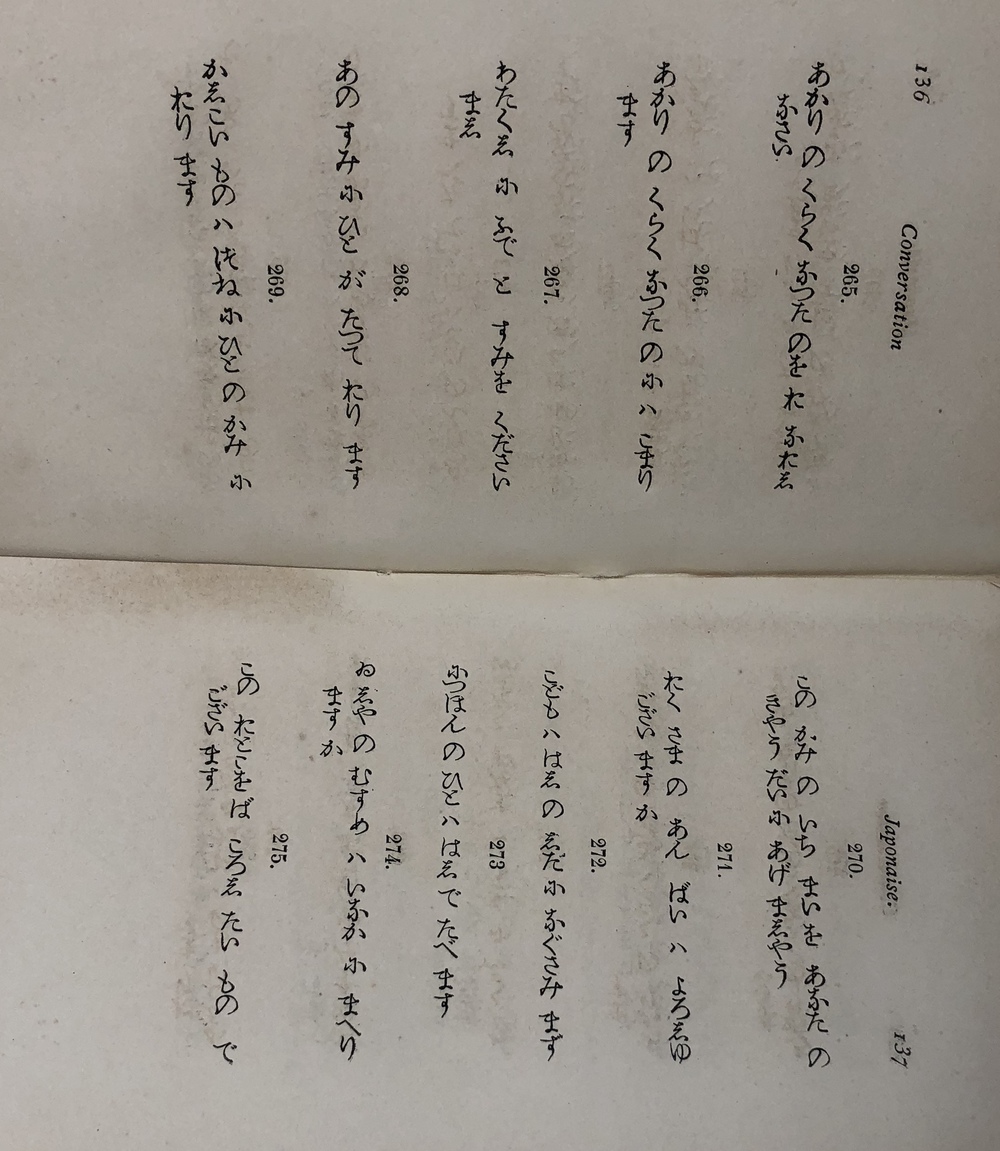 136
Conversation
265.
あかり の くらく なつた のを お なおし
なさい
266.
あかり の くらく なつた の に ハ こまり
ます
267.
わたくし に ふで と すみを ください
まし
268.
あの すみ に ひと が たつて おり ます
269.
かしこい もの ハ つね に ひと の かみ に
おり ます
Japonaise.
137
270.
この かみ の いち まいを あなた の
きやう だい に あげ ましやう
271.
おく さま の あん ばい ハ よろしゆ
ござい ます か
272.
こども ハ はし の した に なぐさみ ます
273
につほん の ひと ハ はし で たべ ます
274.
ゐしや の むすめ ハ いなか に まへり
ます か
275.
この おとこをば ころし たい もの で
ござい ます